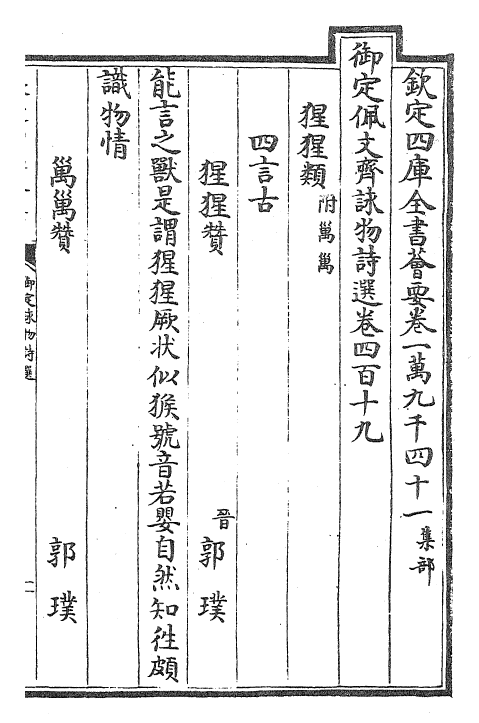 欽定四庫全書薈要卷一萬九千四十一 集部
御定佩文齊詠物詩選卷四百十九
猩猩類 附萬萬
四言古
猩猩贊 晉 郭璞
能言之獸是謂猩猩厥状似猴號音若嬰自然知徃頗
識物情
萬萬贊 郭璞
御定詠物詩選